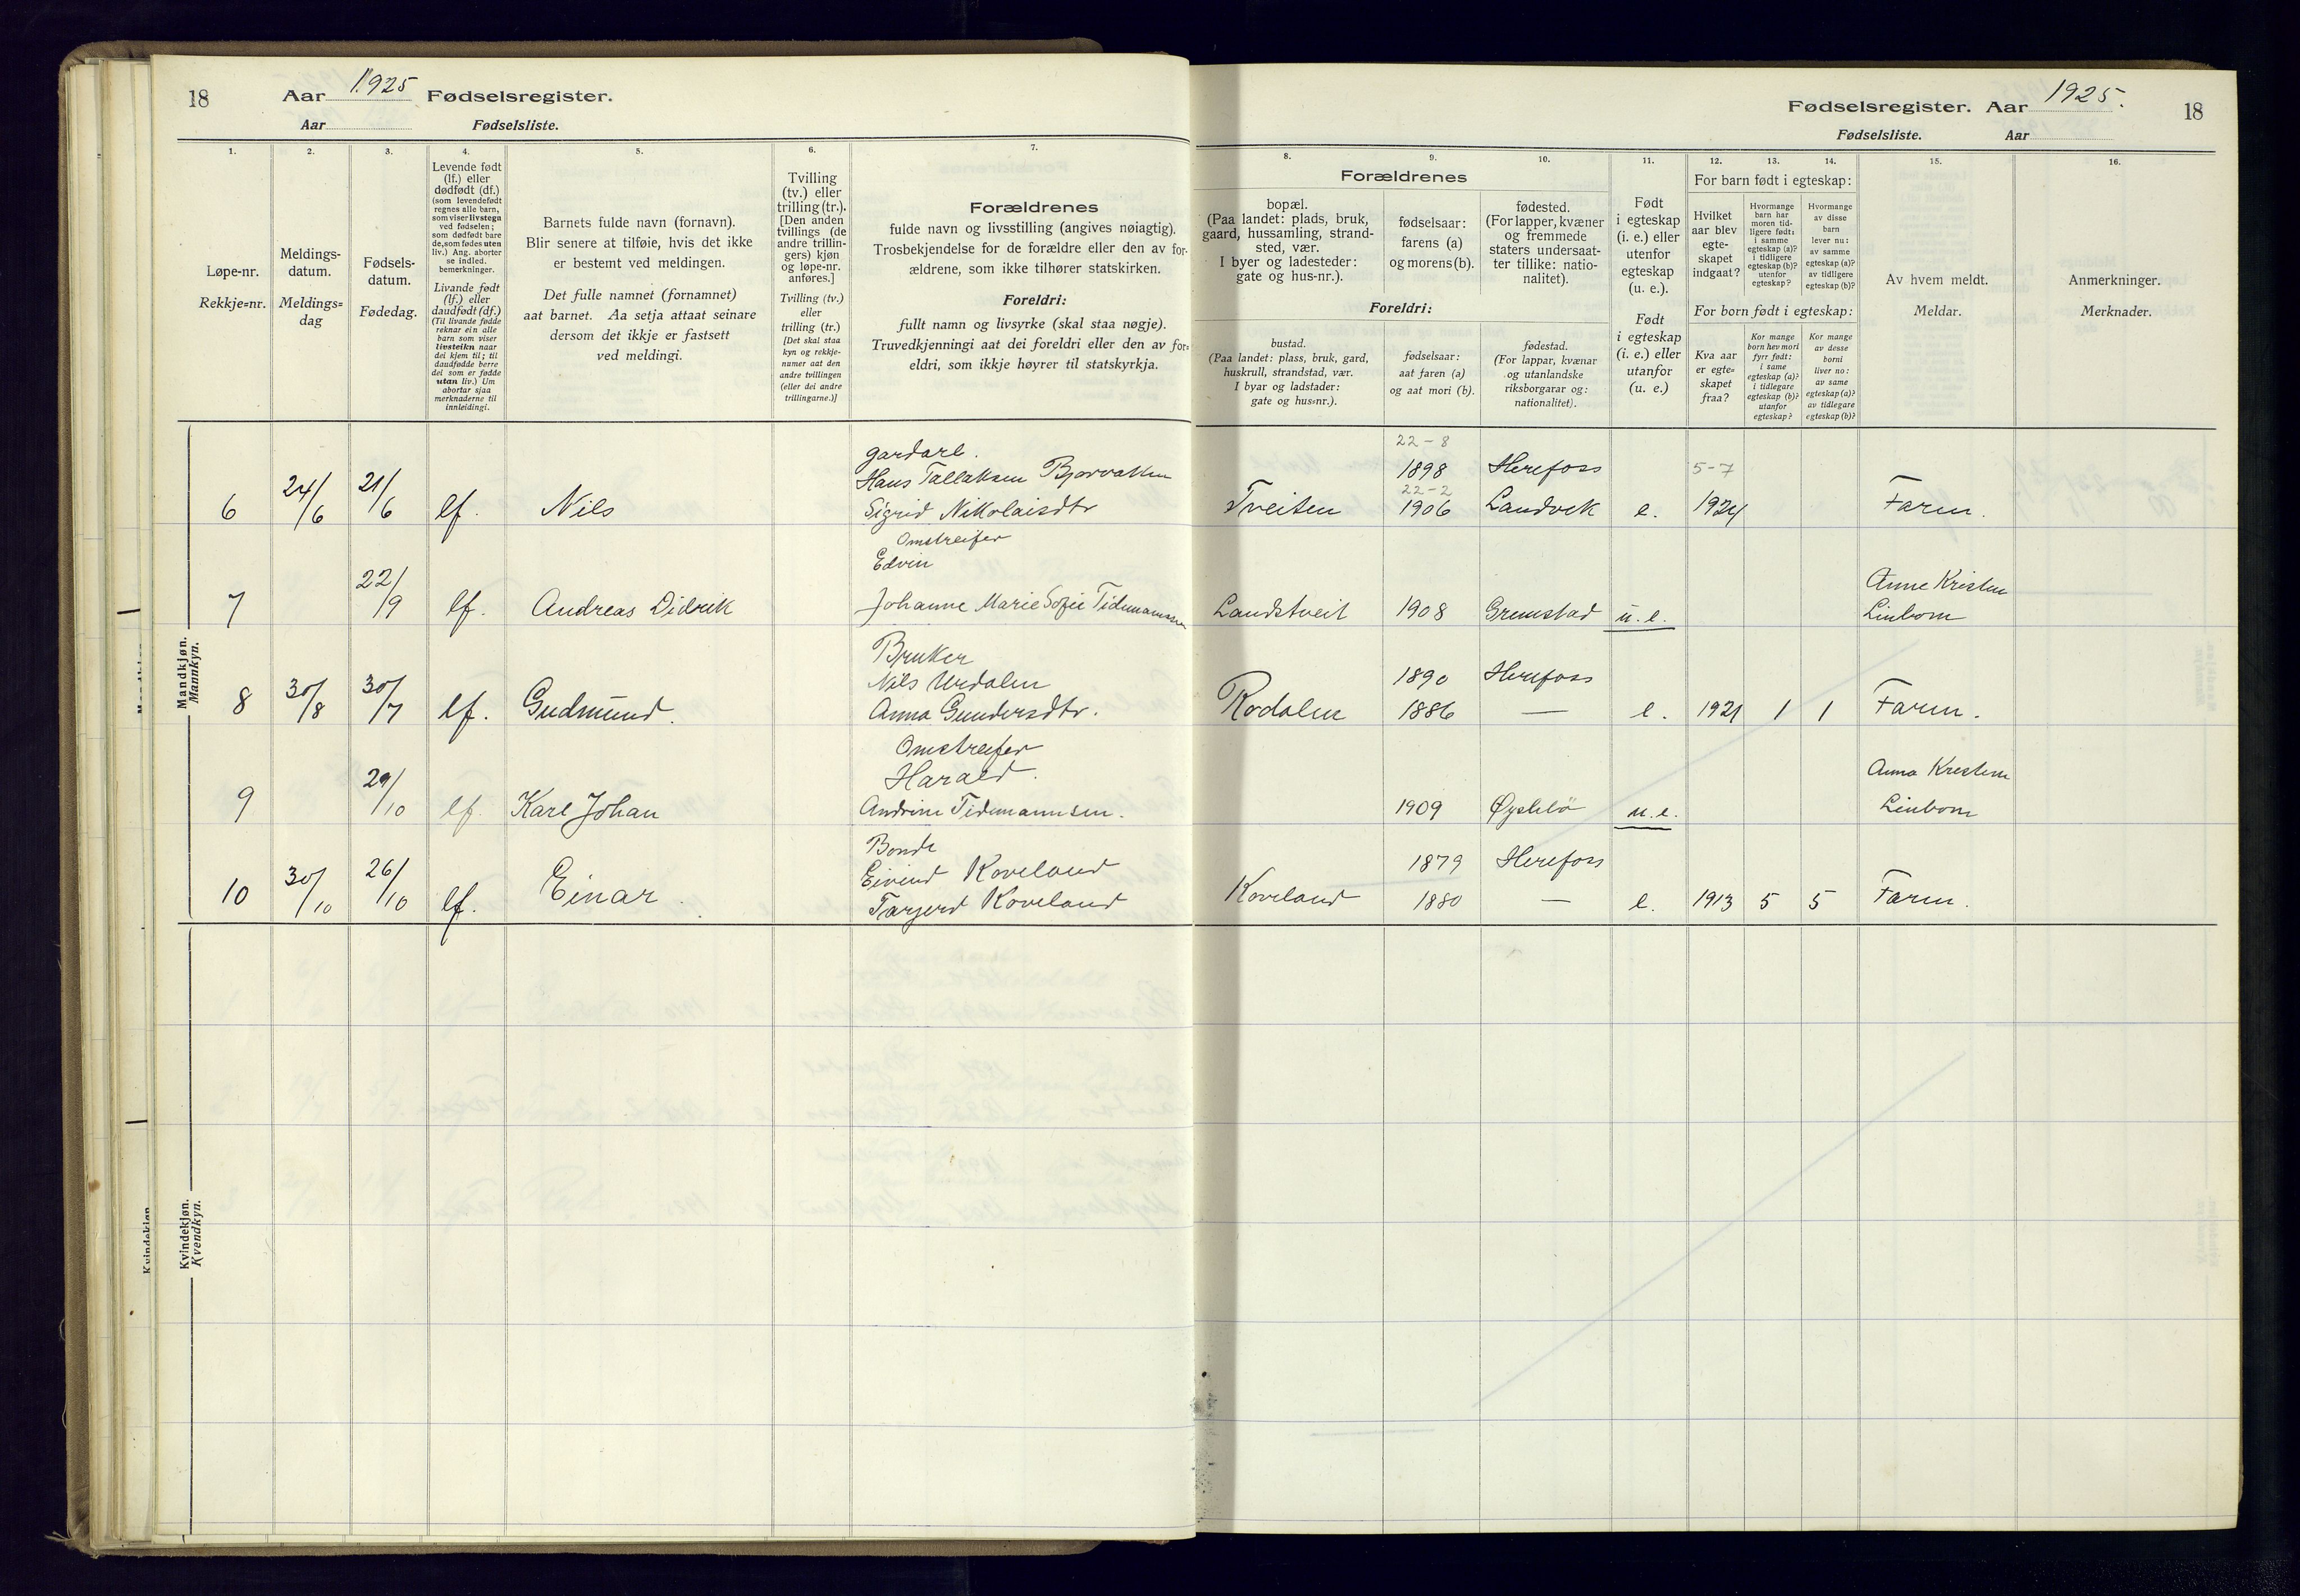 18 Aar 1925 Fødselsregister.
Aar Fødselsliste.
Fødselsregister. Aar 1925. 18
Fødselsliste. Aar
1. 2. 3. 4. 5. 6. 7.
Løpe-nr.
Rekkje=nr.
Meldings-
datum.
Meldings=
dag
Fødsels-
datum.
Fødedag.
Levende født
(lf.) eller
dødfødt (df.)
(som levendefødt
regnes alle barn,
som viser livstegn
ved fødselen;
som dødfødt bare
de, som fødes uten
liv.) Ang. aborter
se indled.
bemerkninger.
Livande født
(lf.) eller
daudfødt (df.)
(Til livande fødde
reknar ein alle
barn som viser
livsteikn naar
dei kjem til; til
daudfødde berre
dei som er fødde
utan liv.) Um
abortar sjaa
merknaderne til
innleidingi.
Barnets fulde navn (fornavn).
Blir senere at tilføie, hvis det ikke
er bestemt ved meldingen.
Det fulle namnet (fornamnet)
aat barnet. Aa setja attaat seinare
dersom det ikkje er fastsett
ved meldingi.
Tvilling
(tv.) eller
trilling (tr.).
[Den anden
tvillings (de
andre trillin-
gers) kjøn
og løpe-nr.
anføres.]
Tvilling (tv.)
eller
trilling (tr.)
[Det skal staa
kyn og rekkje-
numer aat den
andre tvillingen
(eller dei andre
trillingarne.)]
Forældrenes
fulde navn og livsstilling (angives nøiagtig).
Trosbekjendelse for de forældre eller den av for-
ældrene, som ikke tilhører statskirken.
Foreldri:
fullt namn og livsyrke (skal staa nøgje).
Truvedkjenningi aat dei foreldri eller den av for=
eldri, som ikkje høyrer til statskyrkja.
8. 9. 10. 11. 12. 13. 14. 15. 16.
Forældrenes
bopæl.
(Paa landet: plads, bruk,
gaard, hussamling, strand-
sted, vær.
I byer og ladesteder:
gate og hus-nr.).
fødselsaar:
farens (a)
og morens (b).
fødested.
(For lapper, kvæner
og fremmede
staters undersaat-
ter tillike: natio-
nalitet).
Foreldri:
bustad.
(Paa landet: plass, bruk, gard,
huskrull, strandstad, vær.
I byar og ladstader:
gate og hus=nr.).
fødselsaar:
aat faren (a)
og aat mori (b).
fødestad.
(For lappar, kvænar
og utanlandske
riksborgarar og:
nationalitet).
Født
i egteskap
(i. e.) eller
utenfor
egteskap
(u. e.).
Født
i egteskap
(i. e.) eller
utanfor
(u. e.)
For barn født i egteskap:
Hvilket
aar blev
egte-
skapet
indgaat?
Hvormange
barn har
moren tid-
ligere født:
i samme
egteskap (a)?
i tidligere
egteskap (b)?
utenfor
egteskap?
Hvormange
av disse
barn
lever nu:
av samme
egteskap (a)?
av tidligere
egteskap (b)?
For born født i egteskap:
Kva aar
er egte=
skapet
fraa?
Kor mange
born hev mori
fyrr født:
i same
egteskap (a)?
i tidlegare
egteskap (b)?
utanfor
egteskap?
Kor mange
av desse
borni
liver no:
av same
egteskap (a)?
av tidlegare
egteskap (b)?
Av hvem meldt.
Meldar.
Anmerkninger.
Merknader.
Mandkjøn.
Mannkyn.
gardarb.
22-8
Hans Tallaksen Bjorvatten 1898 Herefoss 5-7
22-2
6 24/6 21/6 lf. Nils Sigrid Nikolaisdtr Tveiten 1906 Landvik e. 1924 Faren.
Omstreifer
Edvin
Anne Kristen
7 22/9 lf. Andreas Didrik Johanne Marie Sofie Tidemannsen Landstveit 1908 Grimstad u. e. Linbom
Bruker
Nils Urdalen 1890 Herefoss
8 30/8 30/7 lf. Gudmund. Anna Gundersdtr. Rodalen 1886 — e. 1921 1 1 Faren.
Omstreifer
Harald. Anna Kristen
9 29/10 lf. Karl Johan Andrine Tidemannsen. 1909 Øyslebö u. e. Linbom
Bonde
Eivind Koveland 1879 Herefoss
10 30/10 26/10 lf. Einar. Targerd Koveland Koveland 1880 — e. 1913 5 5 Faren.
Kvindekjøn.
Kvendkyn.